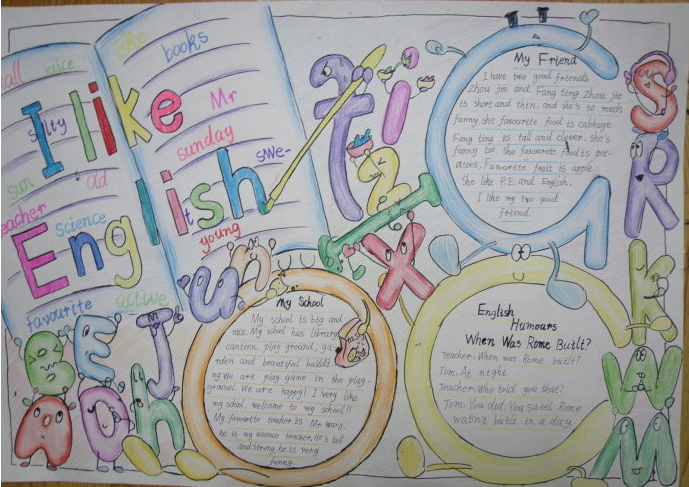 call
nice
like
books
I like
salty
Mr
sunday
sun
old
swe-
t
teacher
science
English
young
favourite
active
My Friend
I have two good friends
Zhou jie and Fang ting Zhou jie
is short and thin. and she's so much
funny she favourite food is cabbage.
Fang ting is tall and clever. she's
funny too. She favourite food is pot-
atoes, Favourite fruit is apple.
She like P.E. and English.
I like my two good
friend.
My School
My school is big and
nice. My school has library
canteen play ground, ga-
rden and beautiful buildi-
ng We are play game in the play-
ground. We are happy! I very like
my school. welcome to my school!!
My favourite teacher is Mr Wang,
he is my science teacher. He's tall
and strong, he is very
funny.
English
Humours
When Was Rome Built?
Teacher: When was Rome built?
Tom: At night.
Teacher: Who told you that?
Tom: You did. You saied Rome
wasn't built in a day.
t
i
z
x
G
S
R
k
W
M
u
n
B
E
J
A
O
h